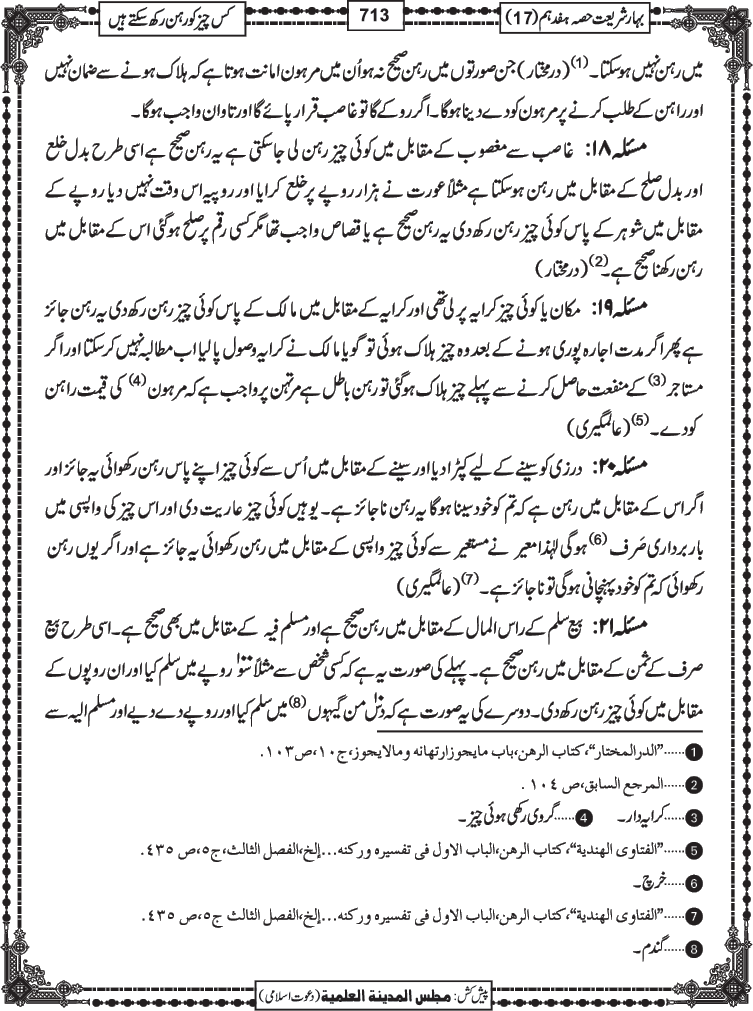 بہارِ شریعت حصہ ہفدہم (17)
713
کس چیز کو رہن رکھ سکتے ہیں
میں رہن نہیں ہوسکتا۔(1) (درمختار) جن صورتوں میں رہن صحیح نہ ہو اُن میں مرہون امانت ہوتا ہے کہ ہلاک ہونے سے ضمان نہیں
اور راہن کے طلب کرنے پر مرہون کو دے دینا ہوگا۔ اگر روکے گا تو غاصب قرار پائے گا اور تاوان واجب ہوگا۔
مسئلہ ۱۸: غاصب سے مغصوب کے مقابل میں کوئی چیز رہن لی جاسکتی ہے یہ رہن صحیح ہے اسی طرح بدل خلع
اور بدل صلح کے مقابل میں رہن ہوسکتا ہے مثلاً عورت نے ہزار روپے پر خلع کرایا اور روپیہ اس وقت نہیں دیا روپے کے
مقابل میں شوہر کے پاس کوئی چیز رہن رکھ دی یہ رہن صحیح ہے یا قصاص واجب تھا مگر کسی رقم پر صلح ہوگئی اس کے مقابل میں
رہن رکھنا صحیح ہے۔(2) (درمختار)
مسئلہ ۱۹: مکان یا کوئی چیز کرایہ پر لی تھی اور کرایہ کے مقابل میں مالک کے پاس کوئی چیز رہن رکھ دی یہ رہن جائز
ہے پھر اگر مدت اجارہ پوری ہونے کے بعد وہ چیز ہلاک ہوئی تو گویا مالک نے کرایہ وصول پالیا اب مطالبہ نہیں کرسکتا اور اگر
مستاجر(3) کے منفعت حاصل کرنے سے پہلے چیز ہلاک ہوگئی تو رہن باطل ہے مرتہن پر واجب ہے کہ مرہون(4) کی قیمت راہن
کو دے۔(5) (عالمگیری)
مسئلہ ۲۰: درزی کو سینے کے لیے کپڑا دیا اور سینے کے مقابل میں اُس سے کوئی چیز اپنے پاس رہن رکھوائی یہ جائز اور
اگر اس کے مقابل میں رہن ہے کہ تم کو خود سینا ہوگا یہ رہن ناجائز ہے۔ یوہیں کوئی چیز عاریت دی اور اس چیز کی واپسی میں
باربرداری صَرف(6) ہوگی لہٰذا معیر نے مستعیر سے کوئی چیز واپسی کے مقابل میں رہن رکھوائی یہ جائز ہے اور اگر یوں رہن
رکھوائی کہ تم کو خود پہنچانی ہوگی تو ناجائز ہے۔(7) (عالمگیری)
مسئلہ ۲۱: بیع سلم کے راس المال کے مقابل میں رہن صحیح ہے اور مسلم فیہ کے مقابل میں بھی صحیح ہے۔ اسی طرح بیع
صرف کے ثمن کے مقابل میں رہن صحیح ہے۔ پہلے کی صورت یہ ہے کہ کسی شخص سے مثلاً سو روپے میں سلم کیا اور ان روپوں کے
مقابل میں کوئی چیز رہن رکھ دی۔ دوسرے کی یہ صورت ہے کہ دس من گیہوں(8) میں سلم کیا اور روپے دے دیے اور مسلم الیہ سے
1 ......"الدرالمختار"،کتاب الرھن،باب مایجوزارتھانہ ومالایجوز،ج۱۰،ص۱۰۳.
2 ......المرجع السابق،ص ۱۰٤ .
3 ......کرایہ دار۔ 4 ......گروی رکھی ہوئی چیز۔
5 ......"الفتاوی الھندیة"،کتاب الرھن،الباب الاول فی تفسیرہ ورکنہ...إلخ،الفصل الثالث،ج۵،ص ٤۳۵.
6 ......خرچ۔
7 ......"الفتاوی الھندیة"،کتاب الرھن،الباب الاول فی تفسیرہ ورکنہ...إلخ،الفصل الثالث ج۵،ص ٤۳۵.
8 ......گندم۔
پیش کش: مجلس المدینة العلمیة (دعوتِ اسلامی)